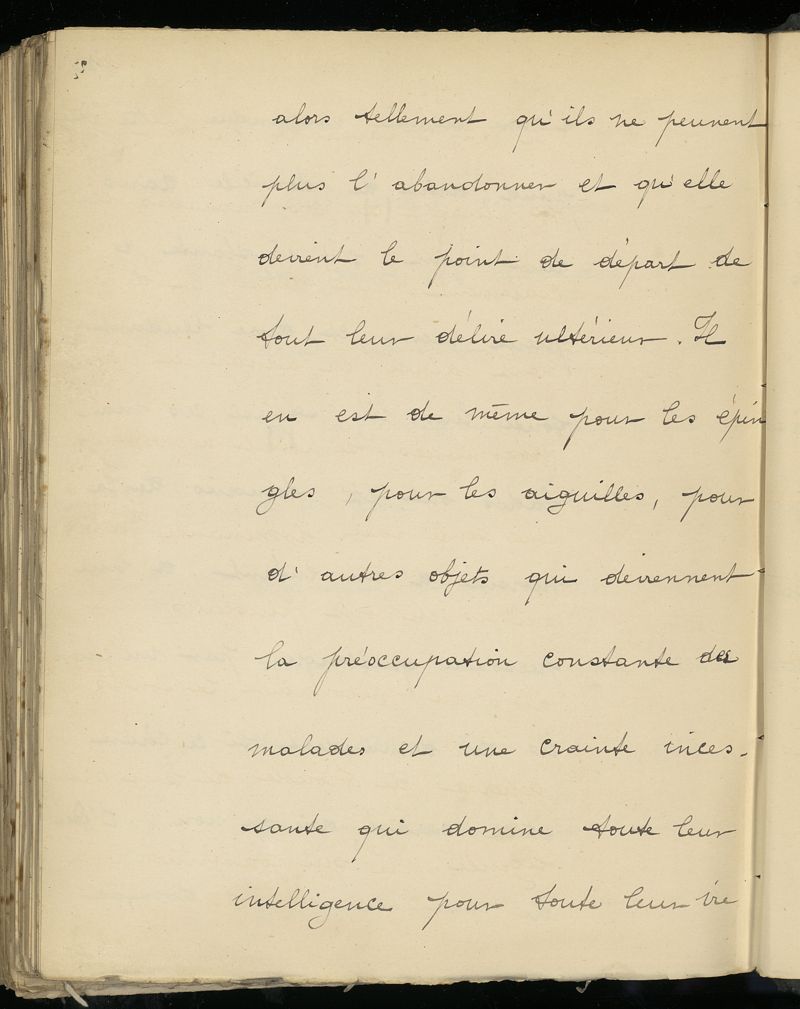 alors tellement qu'ils ne peuvent
plus l'abandonner et qu'elle
devient le point de départ de
tout leur délire ultérieur. Il
en est de même pour les épin
gles, pour les aiguilles, pour
d'autres objets qui deviennent
la préoccupation constante des
malades et une crainte inces-
sante qui domine toute leur
intelligence pour toute leur vie